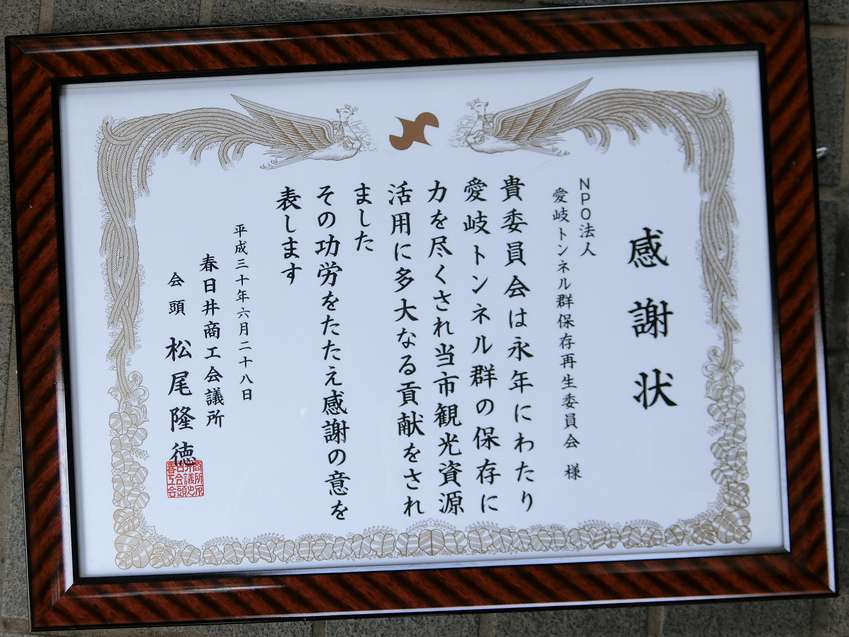 感謝状
NPO法人
愛岐トンネル群保存再生委員会 様
貴委員会は永年にわたり
愛岐トンネル群の保存に
力を尽くされ当市観光資源
活用に多大なる貢献をされ
ました
その功労をたたえ感謝の意を
表します
平成三十年六月二十八日
春日井商工会議所
会頭 松尾隆徳